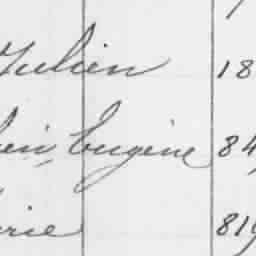 Julien 18
ien Eugène 84
rie 819